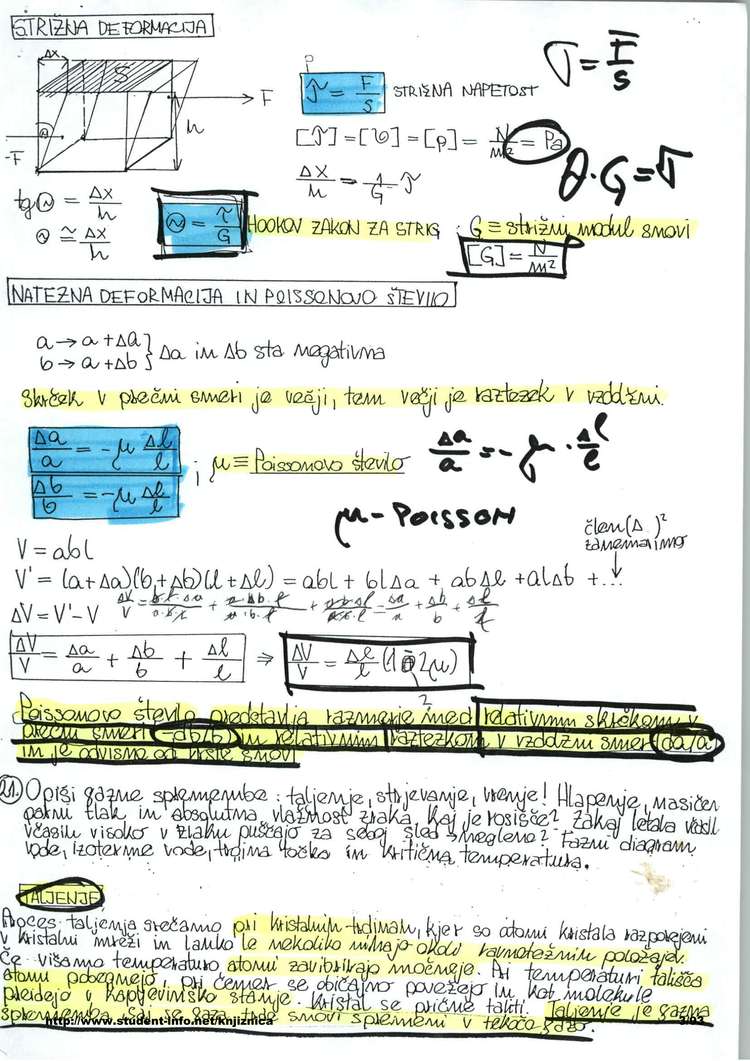 STRIŽNA DEFORMACIJA
Δx
S
F
h
-F
τ = F/S STRIŽNA NAPETOST
σ = F/S
[τ] = [σ] = [p] = N/m² = Pa
Δx/h = 1/G τ
θ · G = τ
tgθ = Δx/h
θ ≅ Δx/h
θ = τ/G HOOKOV ZAKON ZA STRIG : G ≡ strižni modul snovi
[G] = N/m²
NATEZNA DEFORMACIJA IN POISSONOVO ŠTEVILO
a → a + Δa
b → a + Δb } Δa in Δb sta negativna
Skrček v prečni smeri je večji, tem večji je raztezek v vzdolžni.
Δa/a = -μ Δl/l
Δb/b = -μ Δl/l ; μ ≡ Poissonovo število
Δa/a = -μ · Δl/l
μ - POISSON
člen (Δ )²
zanemarimo
V = abl
V' = (a+Δa)(b+Δb)(l+Δl) = abl + blΔa + abΔl + alΔb + ...
ΔV = V' - V
ΔV/V = Δa/a + Δb/b + Δl/l
ΔV/V = Δa/a + Δb/b + Δl/l ⇒ ΔV/V = Δl/l (1 - 2μ)
2
Poissonovo število predstavlja razmerje med relativnim skrčkom v
prečni smeri -db/b in relativnim raztezkom v vzdolžni smeri (da/a)
in je odvisno od vrste snovi
21. Opiši fazne spremembe: taljenje, strjevanje, vrenje! Hlapenje, nasičen
parni tlak in absolutna vlažnost zraka, kaj je rosišče? Zakaj letala
včasih visoko v zraku puščajo za seboj sled megleno? Fazni diagram
vode, izoterme vode, trojna točka in kritična temperatura.
TALJENJE
Proces taljenja srečamo pri kristalnih trdinah, kjer so atomi kristala razporejeni
v kristalni mreži in lahko le nekoliko nihajo okoli ravnotežnih položajev.
Če višamo temperaturo atomi zavibrirajo močneje. Pri temperaturi tališča
atomi pobegnejo, pri čemer se običajno povežejo in kot molekule
preidejo v kapljevinsko stanje. Kristal se prične taliti. Taljenje je fazna
sprememba, saj se faza trde snovi spremeni v tekočo fazo.
http://www.student-info.net/knjiznica